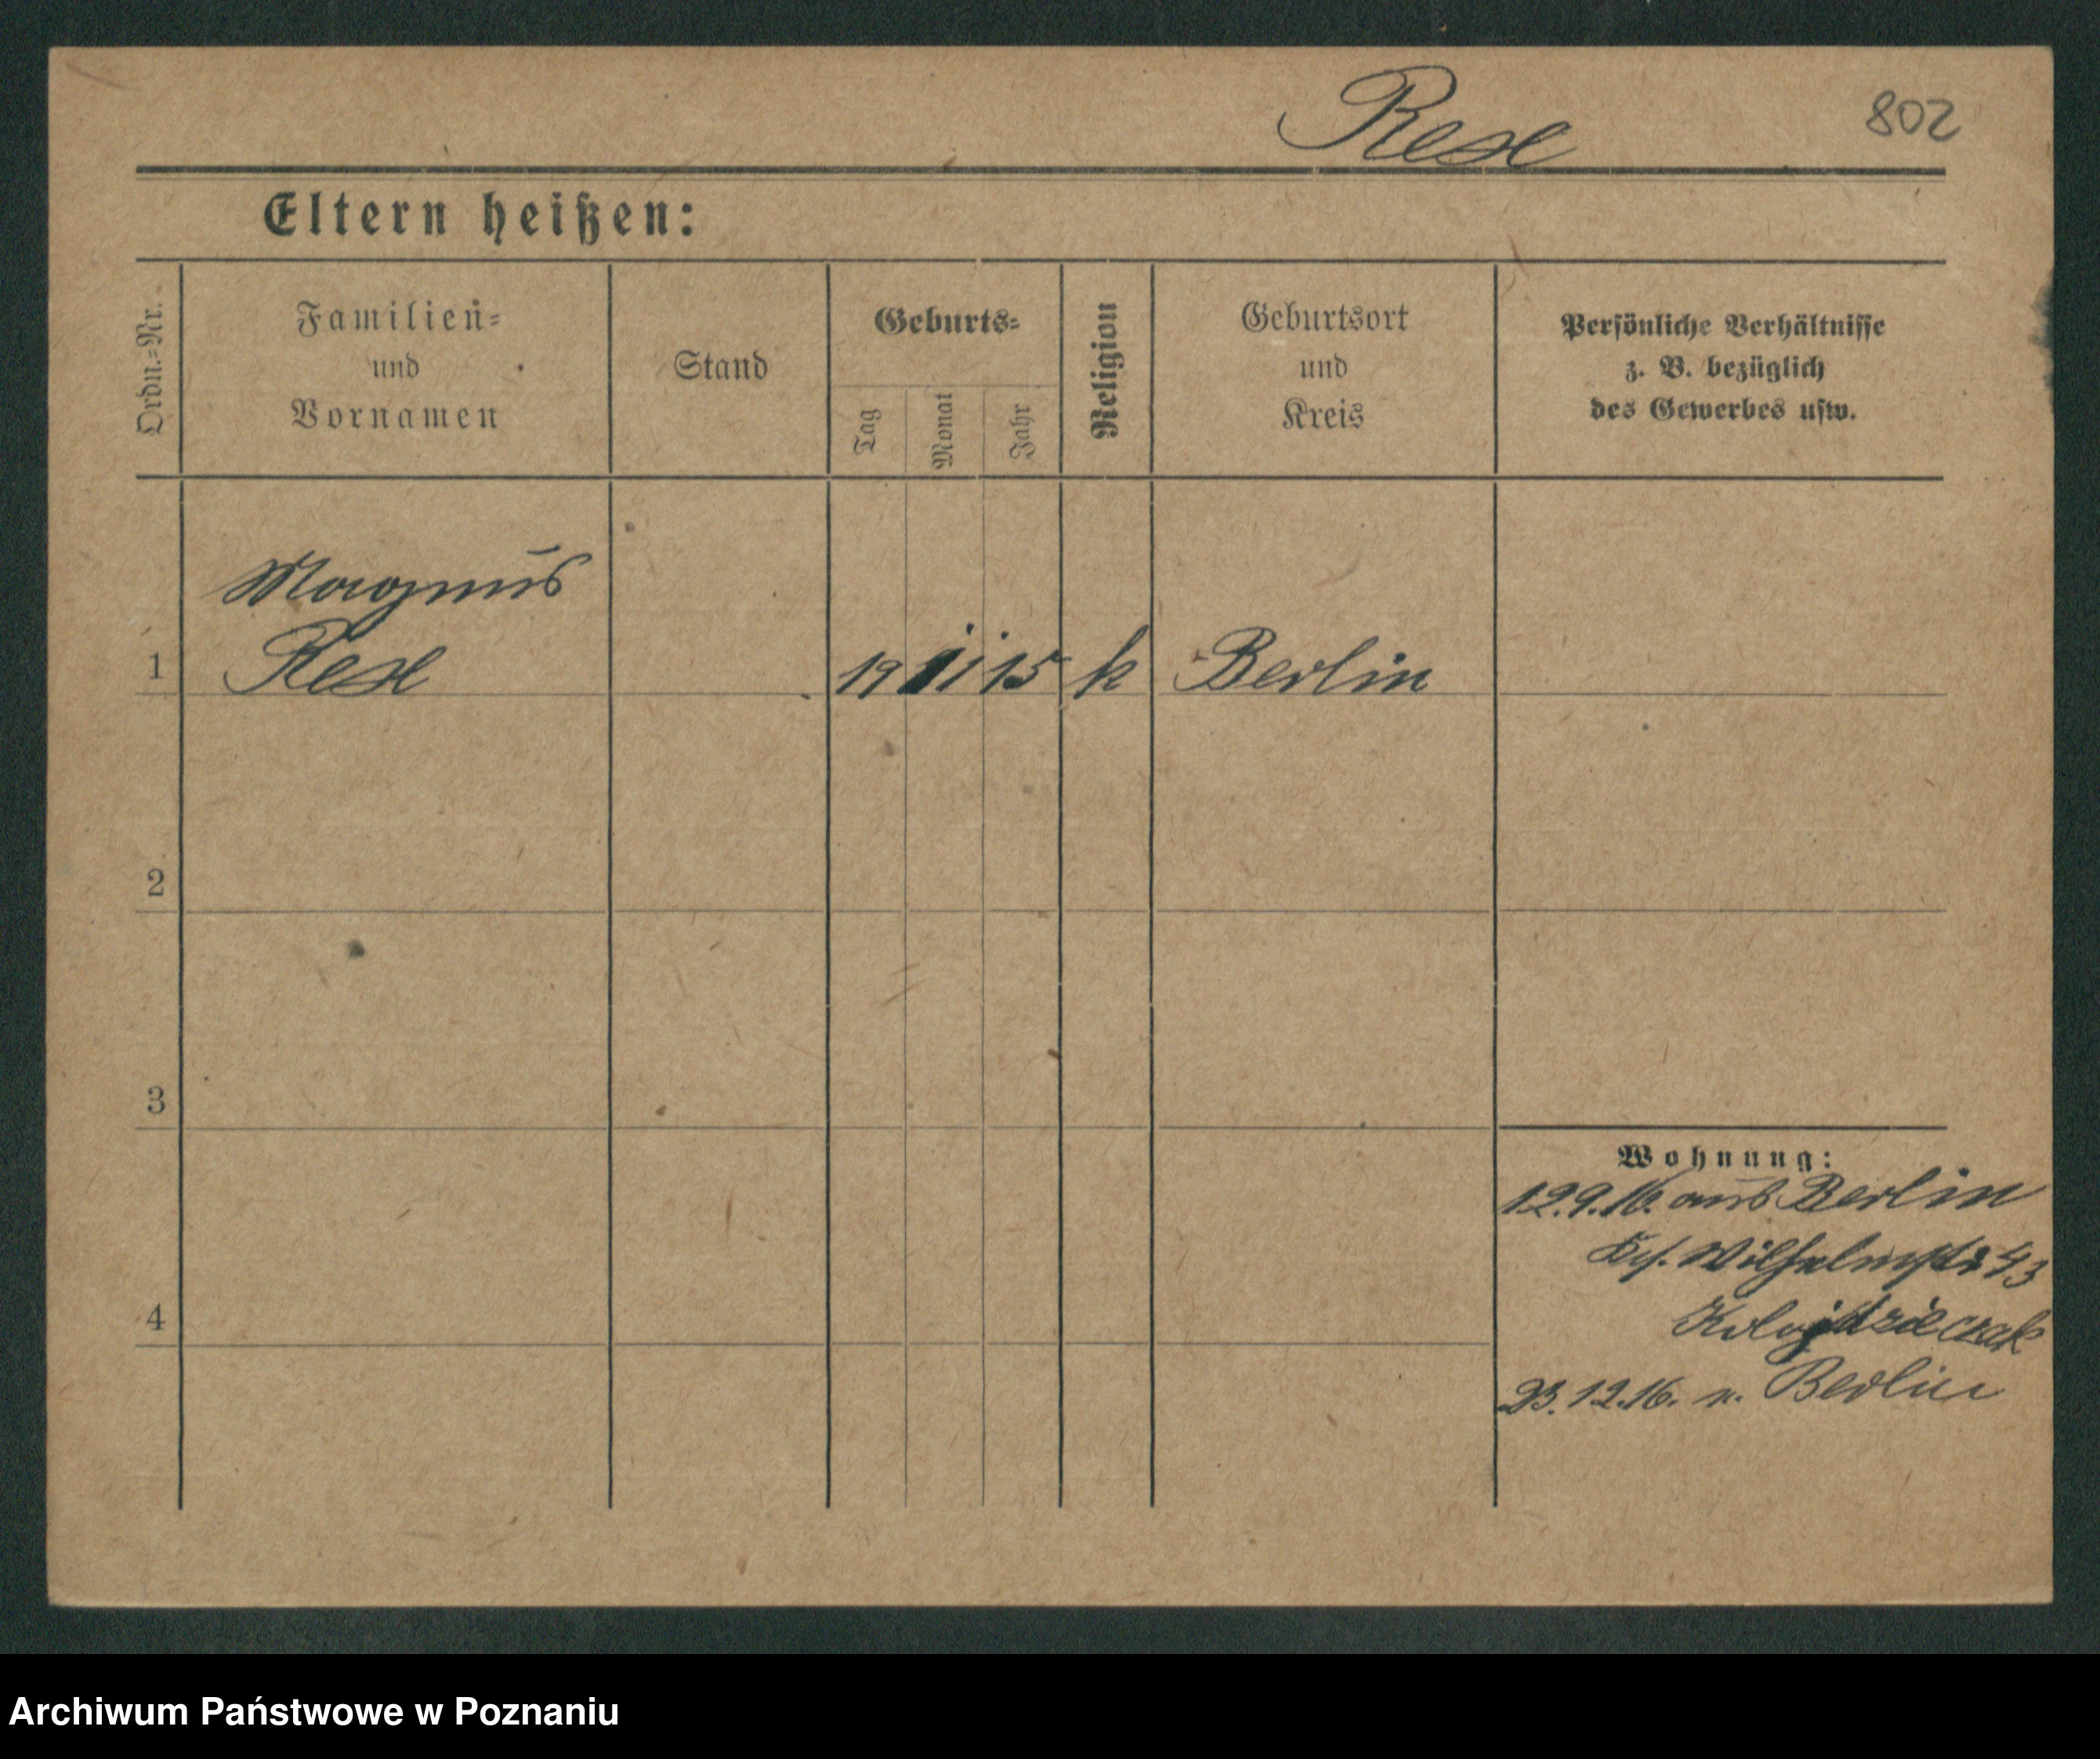 Rexe 802
Eltern heißen:
Ordn.-Nr.
Familien-
und
Vornamen
Stand
Geburts-
Tag
Monat
Jahr
Religion
Geburtsort
und
Kreis
Persönliche Verhältnisse
z. B. bezüglich
des Gewerbes usw.
Magnus
1 19 15 k Berlin
2
3
4
Wohnung:
12.9.16. aus Berlin
Wilhelmstr 43
23.12.16. n. Berlin
Archiwum Państwowe w Poznaniu